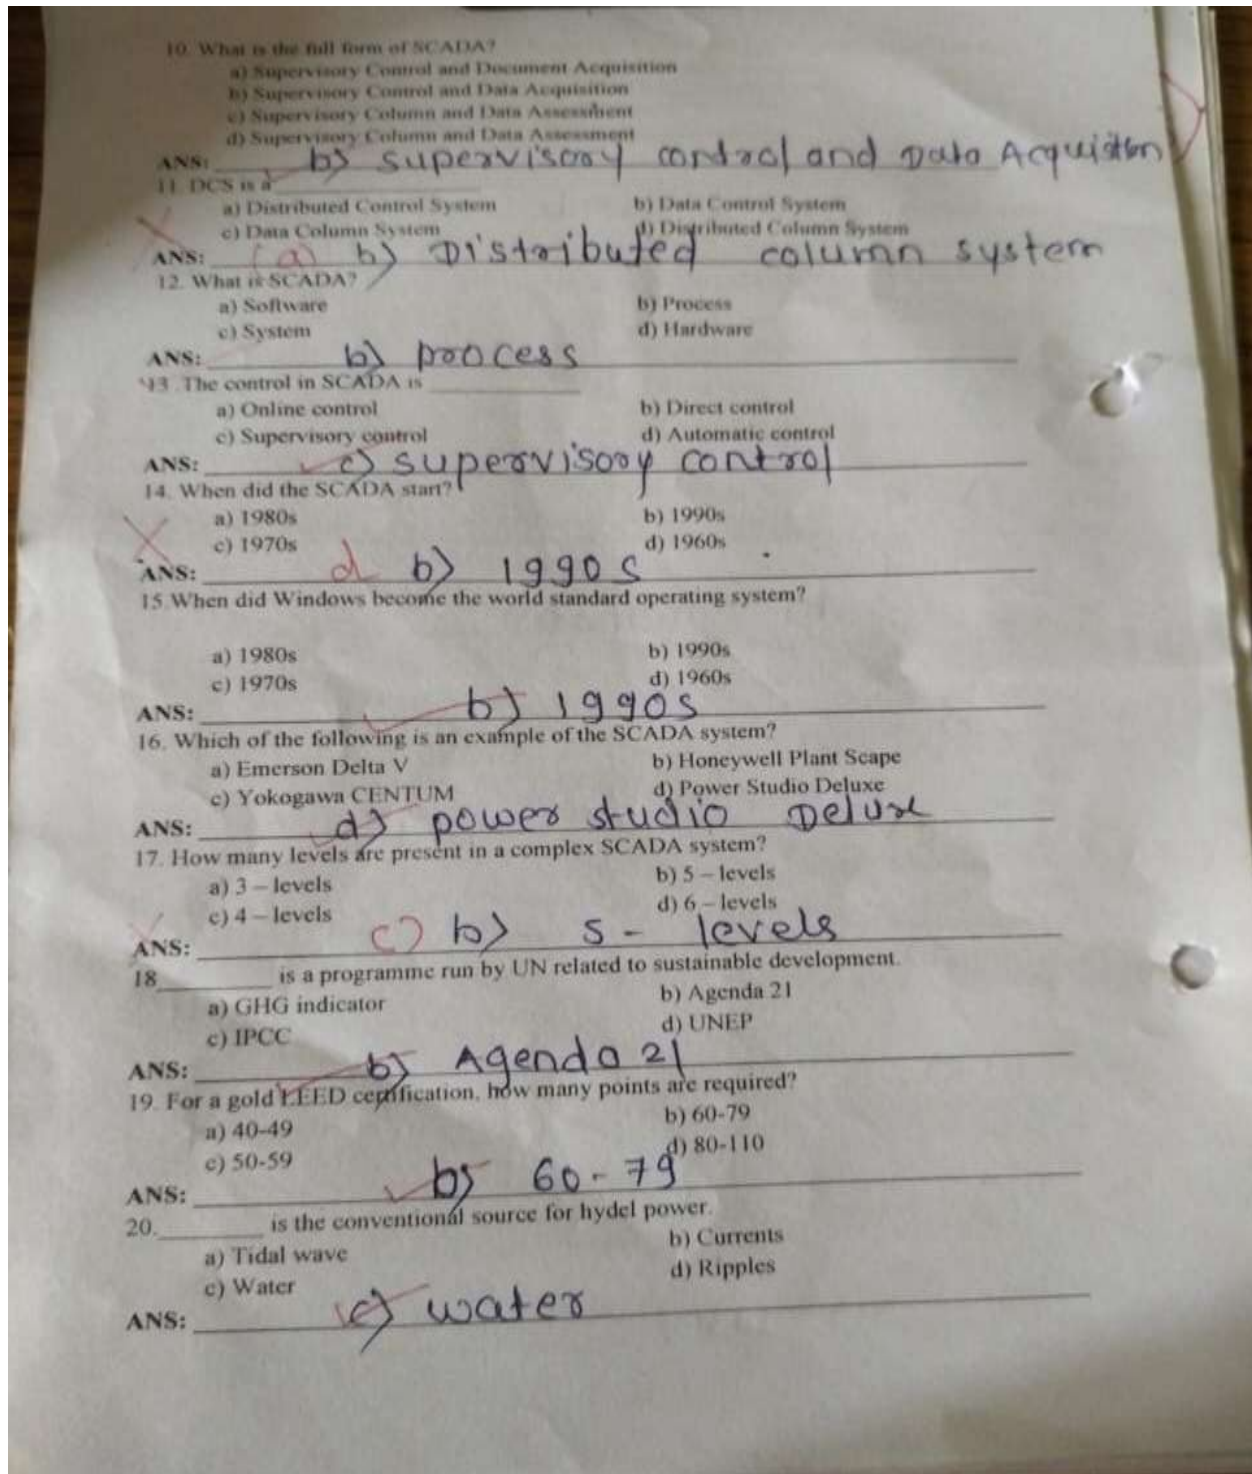 10. What is the full form of SCADA?
a) Supervisory Control and Document Acquisition
b) Supervisory Control and Data Acquisition
c) Supervisory Column and Data Assessment
d) Supervisory Column and Data Assessment
ANS: b) supervisory control and Data Acquistion
11. DCS is a
a) Distributed Control System b) Data Control System
c) Data Column System d) Distributed Column System
ANS: (a) b) Distributed column system
12. What is SCADA?
a) Software b) Process
c) System d) Hardware
ANS: b) process
13. The control in SCADA is
a) Online control b) Direct control
c) Supervisory control d) Automatic control
ANS: c) supervisory control
14. When did the SCADA start?
a) 1980s b) 1990s
c) 1970s d) 1960s
ANS: d b) 1990s
15.When did Windows become the world standard operating system?
a) 1980s b) 1990s
c) 1970s d) 1960s
ANS: b) 1990s
16. Which of the following is an example of the SCADA system?
a) Emerson Delta V b) Honeywell Plant Scape
c) Yokogawa CENTUM d) Power Studio Deluxe
ANS: d) power studio Deluxe
17. How many levels are present in a complex SCADA system?
a) 3 – levels b) 5 – levels
c) 4 – levels d) 6 – levels
ANS: c) b) 5 - levels
18 is a programme run by UN related to sustainable development.
a) GHG indicator b) Agenda 21
c) IPCC d) UNEP
ANS: b) Agenda 21
19. For a gold LEED certification, how many points are required?
a) 40-49 b) 60-79
c) 50-59 d) 80-110
ANS: b) 60-79
20. is the conventional source for hydel power.
a) Tidal wave b) Currents
c) Water d) Ripples
ANS: c) water